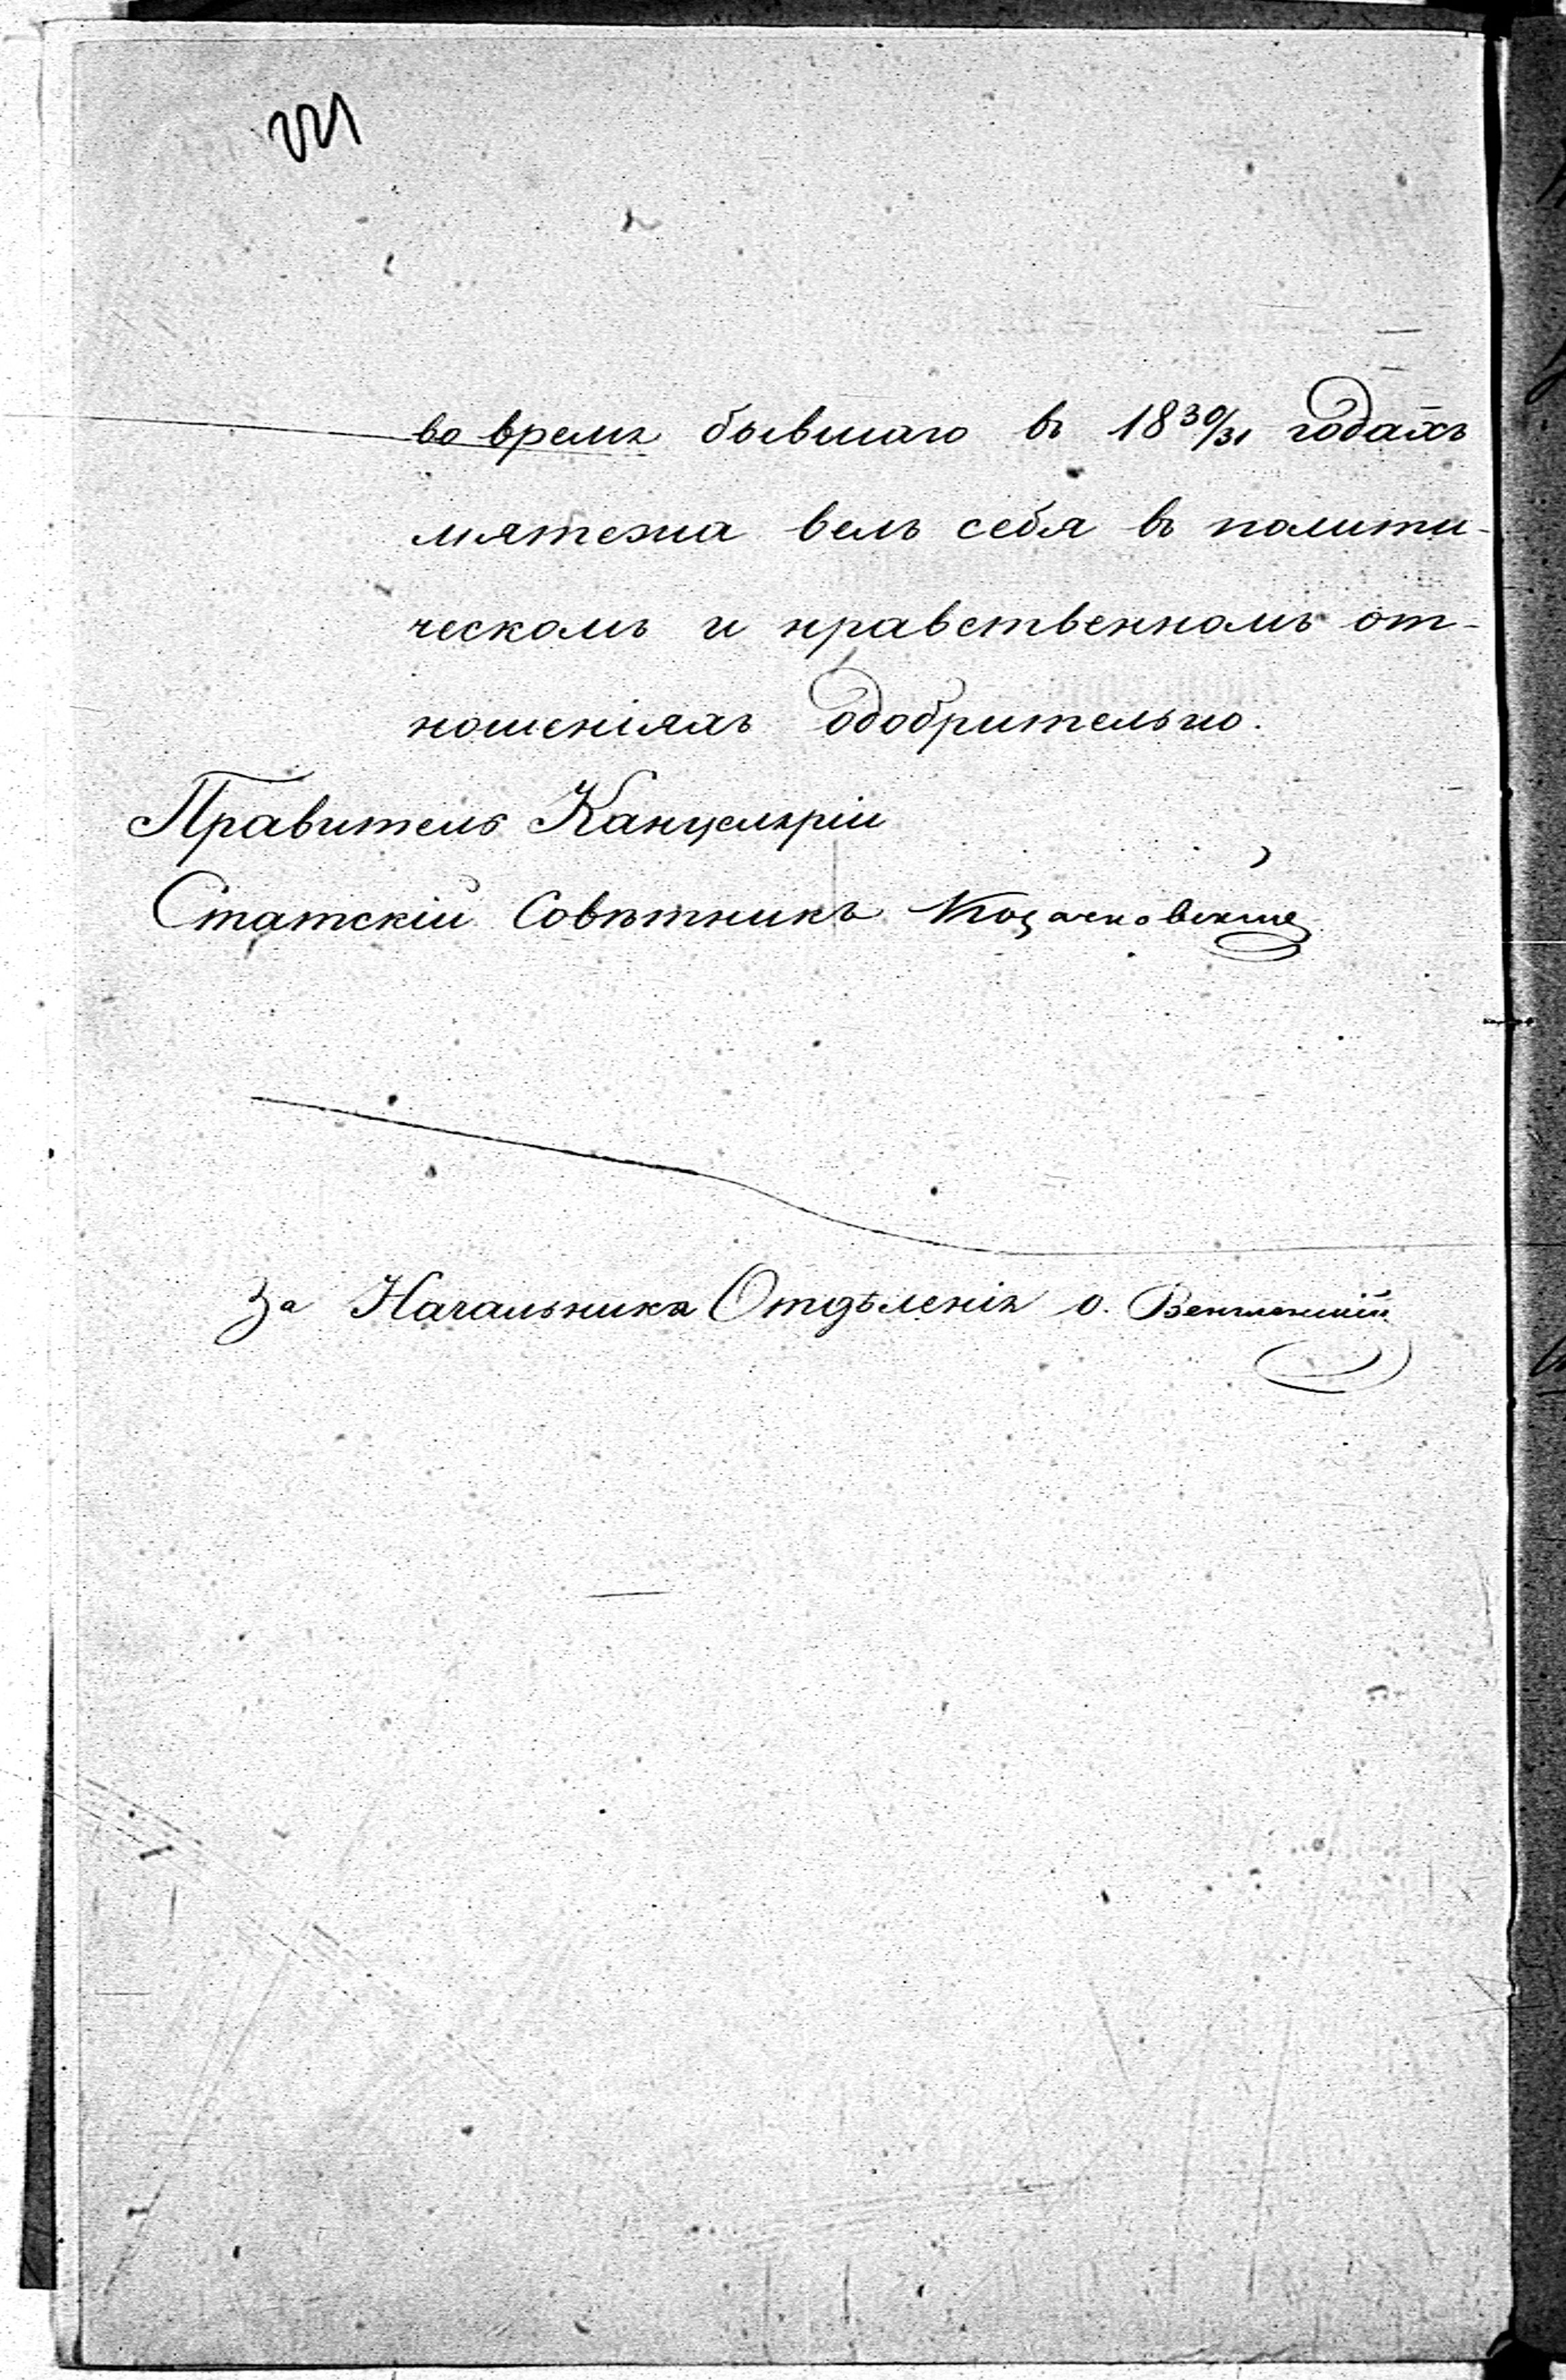 во время бывшаго въ 18 30/31 годахъ
мятежа велъ себя въ полити-
ческомъ и нравственномъ от-
ношеніяхъ одобрительно.
Правитель Канцеляріи
Статскій Совѣтникъ
За Начальника Отдѣленія О.